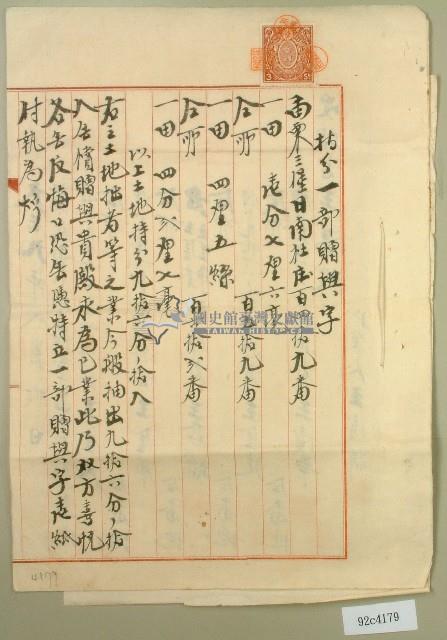 持分一部贈與字
南東三堡日南社庄百四拾九番
一田 壹分七厘六毫
仝所 百五拾九番
一田 四厘五絲
仝所 百五拾弍番
一田 四分弍厘七毫
以上土地持分九拾六分ノ拾八
右之土地拙者等之業今般抽出九拾六分ノ拾
八無償贈與貴殿永為己業此乃双方喜悅
各無反悔口恐無憑特立一部贈與字壹紙
付執為炤
國史館臺灣文獻館
TAIWAN HISTORICA
3
4179
92c4179